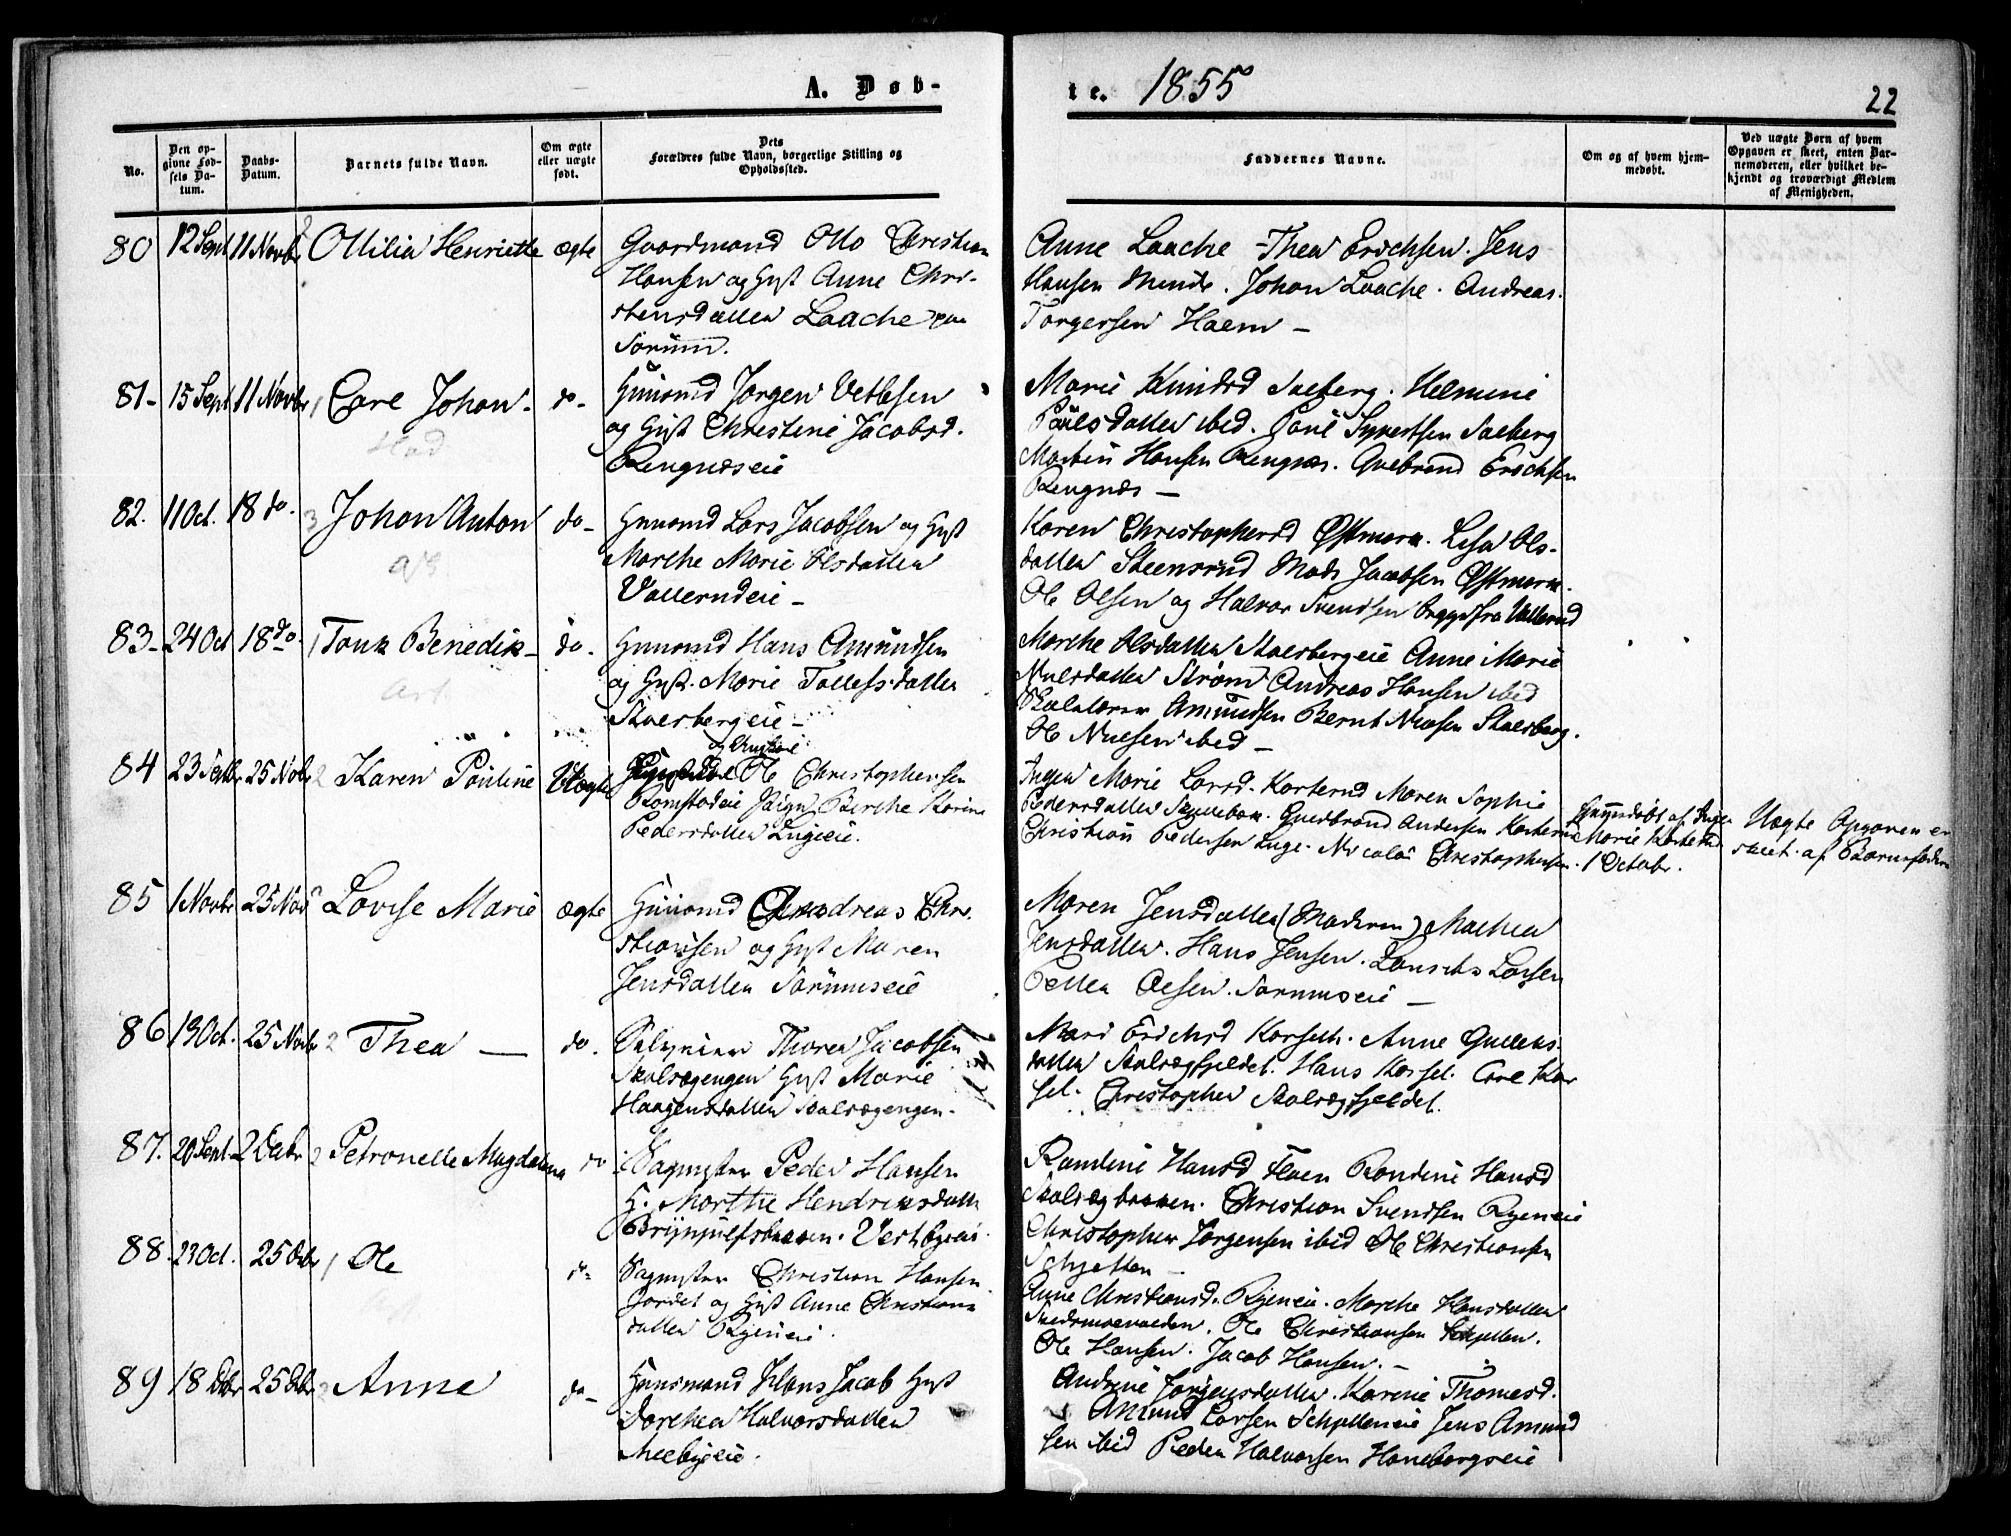 A. Døb-
te. 1855
22
No.
Den opgivne Fødsels Datum.
Daabs-Datum.
Barnets fulde Navn.
Om ægte eller uægte født.
Dets Forældres fulde Navn, borgerlige Stilling og Opholdssted.
Faddernes Navne.
Om og af hvem hjemmedøbt.
Ved uægte Børn af hvem Opgaven er skeet, enten Barnemoderen, eller hvilket bekjendt og troværdigt Medlem af Menigheden.
80 12 Sept 11 Novbr Ottilia Henriette ægte Gaardmand Otto Christian
Hansen og Hust Anne Chri-
stensdatter Laache paa
Sørum.
Anne Laache Thea Erichsen. Jens
Hansen Johan Laache. Andreas
Torgersen Haem —
81- 15 Sept 11 Novbr 1 Carl Johan. do- Huusmd Jørgen Vetlesen
og Hust Christine Jacobsd.
Rengnæseie
Marie Saeberg. Helmine
Paulsdatter ibid. Paul Syvertsen Saeberg
Martin Hansen Rengnæs. Gulbrand Erichsen
Rengnæs —
82. 11 Oct. 18 do. 3 Johan Anton do- Huusmd Lars Jacobsen og Hust
Marthe Marie Olsdatter
Vallerudeie —
Karen Christophersd Østmora. Lisa Ols-
datter Steensrud Mads Jacobsen Østmora.
Ole Olsen og Halvor Svendsen begge fra Vallerud
83- 24 Oct 18 do. 1 Benedik- do- Huusmd Hans Amundsen
og Hust. Marie Tollefsdatter
Skaersbergeie —
Marthe Olsdatter Skaersbergeie Anne Marie
Nielsdatter Strøm Andreas Hansen ibid
Skolelærer Amundsen Bernt Nielsen Skaersberg.
Ole Nielsen ibid —
84 23 Septbr 25 Nobr 2 Karen Pauline Uægte Ole Christophersen
Romstadeie Pige Berthe Karine
Pedersdatter Lugieie.
Inger Marie Larsd. Korterud Maren Sophie
Pedersdatter Gulbrand Andersen Korterud
Christian Pedersen Luge. Nicolai Christophersen.
Hjemmedøbt af Inger
Marie Korterud
1 Octobr.
Uægte Opgaven er
skeet af Barnefaderen
85 1 Novbr 25 Nov Lovise Marie ægte Huusmd Andreas Chri-
stiansen og Hust Maren
Jensdatter Sørumseie
Maren Jensdatter (Moderen) Mathea
Jensdatter. Hans Jensen. Larsen
Petter Olsen. Sørumseie —
86 19 Oct. 25 Novbr 2 Thea — do. Selveier Thoren Jacobsen
Skalsægengen Hust Marie
Haagensdatter Skalsægengen.
Mari Erichsd Korseth. Anne Gulleks-
datter Skalsægfjeldet. Hans Korsel. Carl Kor
sel. Christopher Skalsægfjeldet.
87. 20 Sept. 2 Decbr 2 Petronelle Magdalena do Sagmester Peder Hansen
H. Marthe Hendriksdatter
Brynjulfsbakken. Vestbyeie.
Randine Hansd Flaen Randine Hansd
Skalsægbakken. Christian Svendsen Ryeneie
Christopher Jørgensen ibid Ole Christiansen
Schjetten —
88. 23 Oct. 25 Dbr 1 Ole do Sagmester Christian Hansen
Jordet og Hust Anne Christians
datter Ryeneie.
Anne Christiansd. Ryeneie. Marthe Hansdatter
Ole Christiansen Schjetten.
Ole Hansen. Jacob Hansen. —
89 18 Dbr 25 Dbr Anne do- Huusmand Hans Jacob Hust
Dorthea Halvorsdatter
Meebyeie.
Andrine Jørgensdatter. Karine Thomesd.
Amund Larsen Schjetteneie Jens Amund
sen ibid Peder Halvorsen Haneborgseie